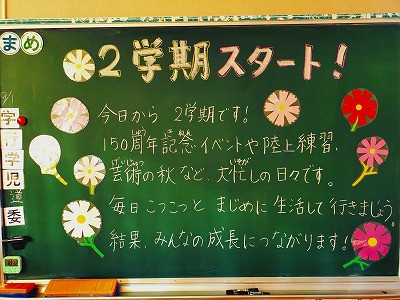 まめ
2学期スタート!
今日から 2学期です!
150周年記念イベントや陸上練習、
芸術の秋など、大忙しの日々です。
毎日こつこつと まじめに生活して行きましょう
結果、みんなの成長につながります!
学
学
児
道
委